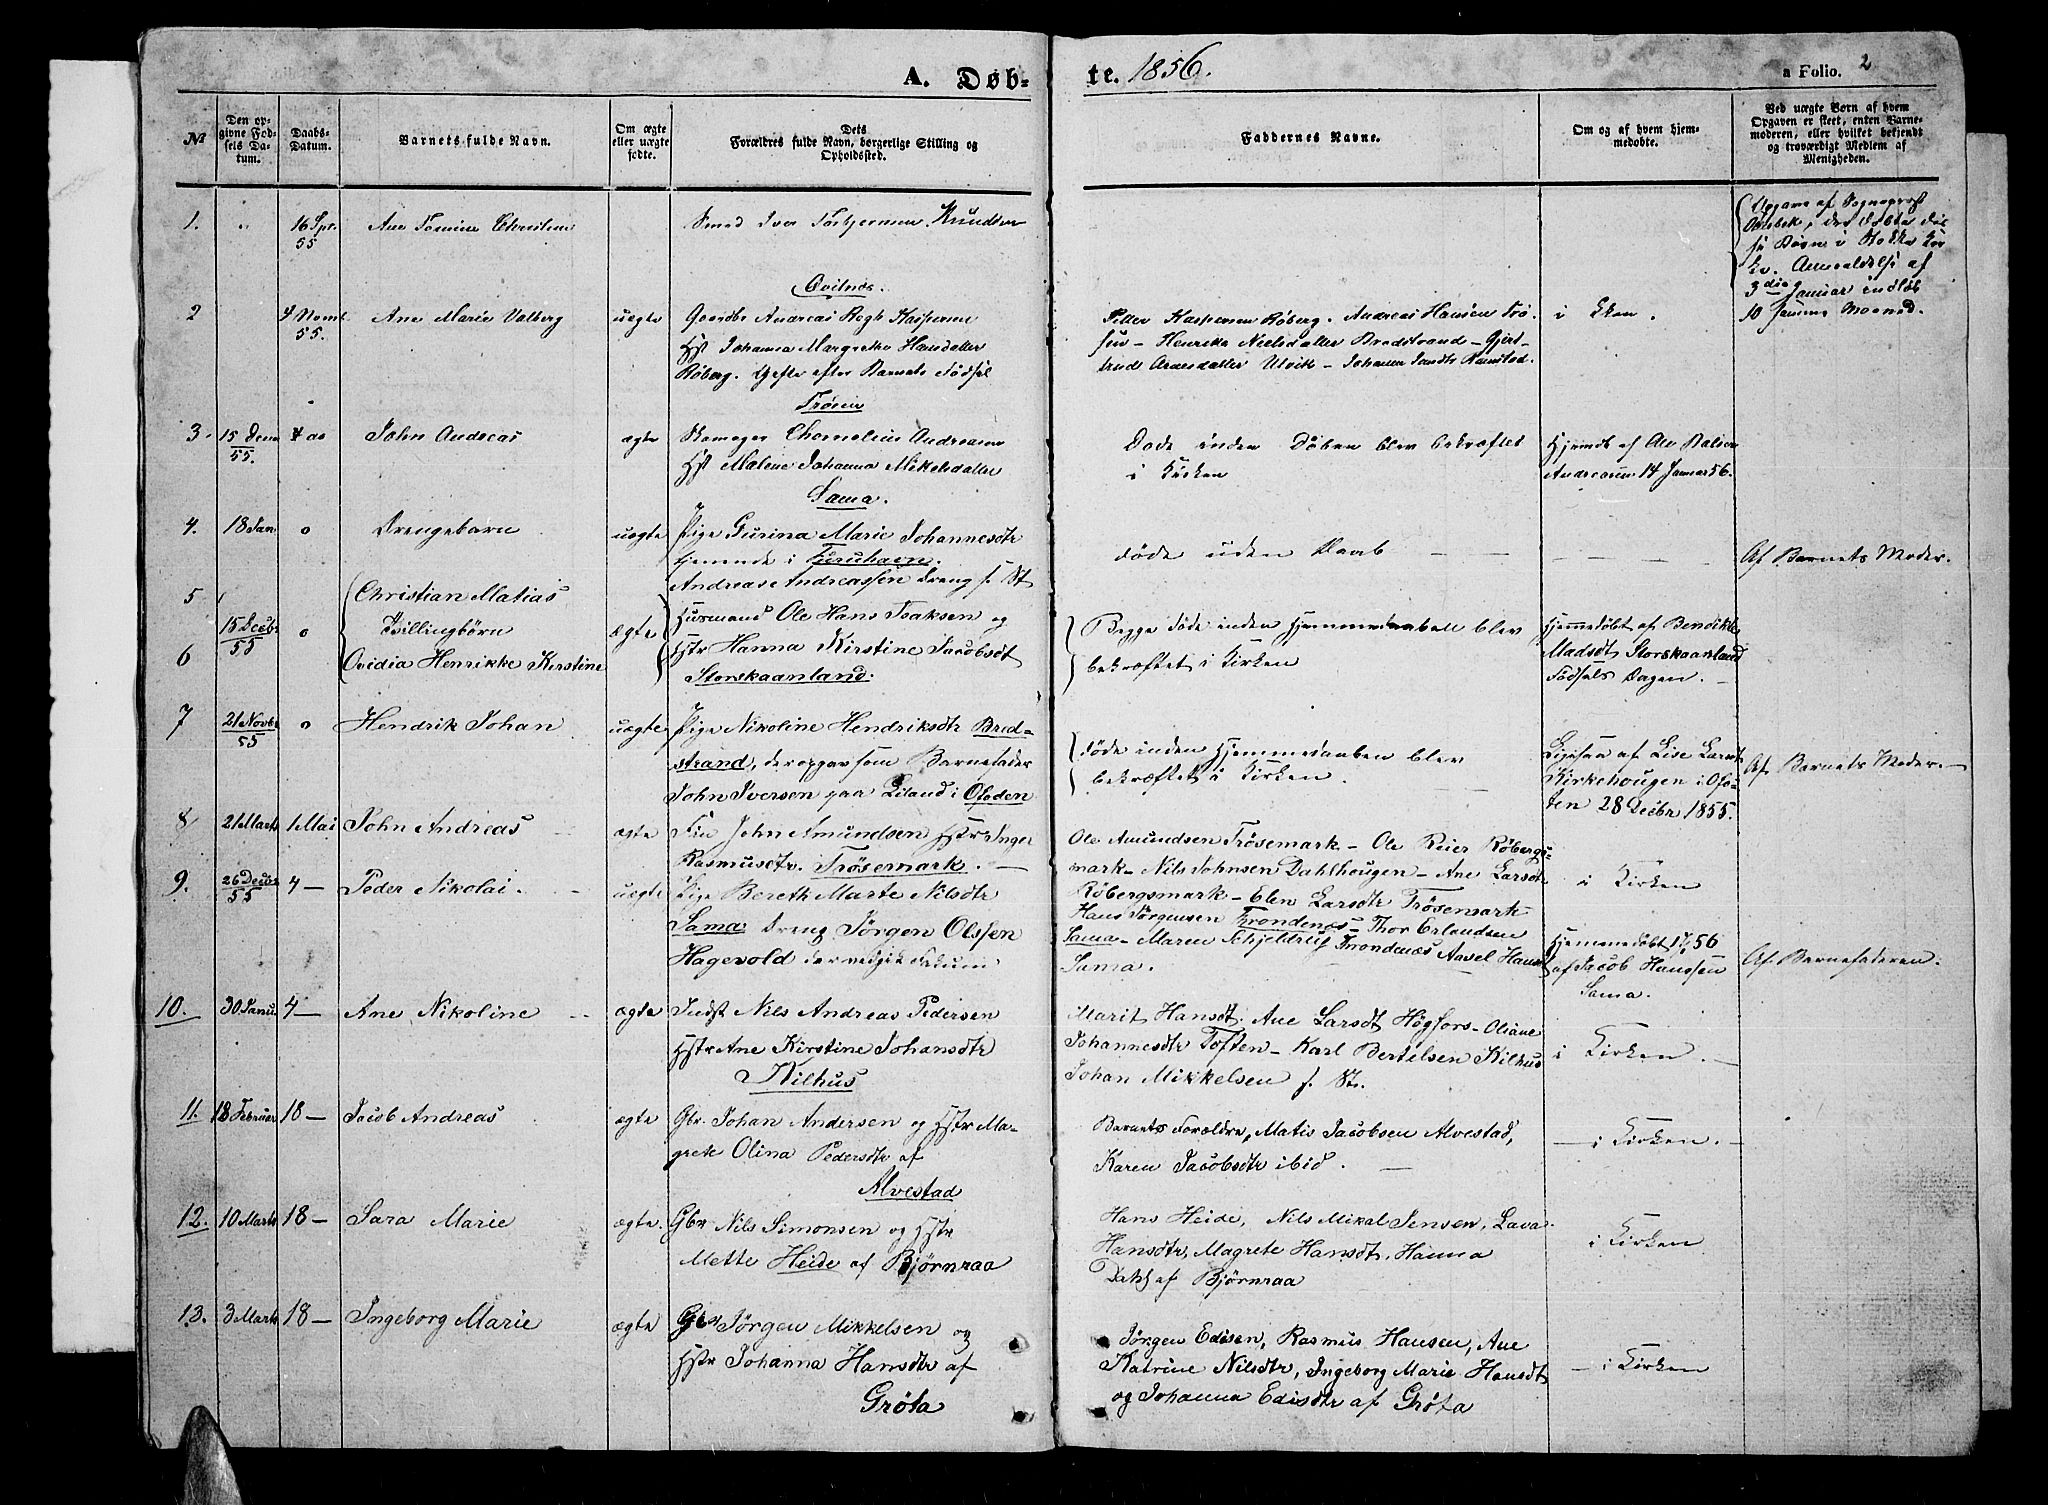 A. Døb-
te. 1856.
a Folio. 2
№
Den op-
givne Fød-
sels Da-
tum.
Daabs-
Datum.
Barnets fulde Navn.
Om ægte
eller uægte
fødte.
Dets
Forældres fulde Navn, borgerlige Stilling og
Opholdssted.
Faddernes Navne.
Om og af hvem hjem-
medøbte.
Ved uægte Børn af hvem
Opgaven er skeet, enten Barne-
moderen, eller hvilket bekjendt
og troværdigt Medlem af
Menigheden.
1.
"
16 Spr.
55
Ane Tomine Christine
Smed Iver Torbjernsen Knudsen
af
i
Anmeldelse af
3die Januar indløb
10 samme Moaned.
2
4 Novmb
55.
Ane Marie Valberg
uegte
Andreas Kaspersen
Hst Johanna Margrethe Hansdatter
Røberg. Gifte efter Barnets Fødsel
Petter Kaspersen Røberg. Andreas Hansen Trø-
sen - Henrika Nielsdatter Bredstrand - Gjert-
rud Arnesdatter Utvik - Johanna
i
3.
15 Decm
55.
John Andreas
ægte
Trøsen
Chornelius Andreasen
Hst Malene Johanna Mikkelsdatter
Døde inden Døben blev bekræftet
i Kirken
Hjemdt af Ole
Andreasen 14 Januar 56.
4.
18 Jan
o
Drengebarn
uægte
Sama.
Pige Gurina Marie Johannesdtr
tjenende i
Andreas Andreassen Dreng f. St
døde uden Daab
Af Barnets Moder.
5
6
15 Decbr
55
o
Christian Matias
Tvillingbørn
Ovidia Henrikke Kirstine
ægte
Husmand Ole Hans Isaksen og
Hstr Hanna Kirstine Jacobsdt
Storskaanland.
Begge døde inden Hjemmedaaben blev
bekræftet i Kirken
Hjemedøbt af Bendikte
Madsdt Storskaanland
Fødsels Dagen.
7
21 Novbr
55
o
Hendrik Johan
uægte
Pige Nikoline Hendriksdtr Bred-
strand, der opgav som Barnefader
John Iversen paa Liland i Ofoden
døde inden Hjemmedaaben blev
bekræftet i Kirken.
Ligesaa af Lise Larsdt
Kirkehougen i Ofo-
ten 28 Decbr 1855.
Af Barnets Moder
8
21 Marts
1 Mai
John Andreas
ægte
Fin John Amundsen Hstr Inger
Rasmusdtr. Trøsemark.
Ole Amundsen Trøsemark - Ole Reier Røbergs-
mark - Nils Johnsen Dahlhougen - Ane Larsdtr
Røbergsmark - Elen Larsdtr Trøsemark
i Kirken
9.
26 Decbr
55
4 -
Peder Nikolai.
uægte
Pige Bereth Marte Nilsdtr
Sama Dreng Jørgen Olssen
Hagevold der vedgik Factum
Hans Jørgensen Trondenæs - Thor Erlandsen
Sama - Maren Schjeldrup Trondenæs Axsel Hans
Sama.
Hjemmedøbt 56
af Jacob Hanssen
Sama.
Af Barnefaderen.
10.
30 Janu.
4 -
Ane Nikoline
ægte
Indst Nils Andreas Pedersen
Hstr Ane Kirstine Johansdtr
Kilhus
Marit Hansdt. Ane Larsdt Høgfors - Oliane
Johannesdtr Toften - Karl Bertelsen Kilhus
Johan Mikkelsen f. St.
i Kirken.
11.
18 Februar
18 -
Jacob Andreas
ægte
Gbr. Johan Andersen og Hstr Ma-
grete Olina Pedersdtr af
Alvestad
Barnets Forældre, Matis Jacobsen Alvestad,
Karen Jacobsdtr ibid.
- i Kirken. -
12.
10 Marts
18 -
Sara Marie
ægte.
Gbr Nils Simonsen og Hstr
Mette Heide af Bjørnraa
Hans Heide, Nils Mikal Jensen, Lava
Hansdtr, Magrete Hansdt, Hanna
Dahl af Bjørnraa
i Kirken
13.
3 Marts
18 -
Ingeborg Marie
ægte
Gbr Jørgen Mikkelsen og
Hstr Johanna Hansdtr af
Grøta
Jørgen Edisen, Rasmus Hansen, Ane
Katrine Nilsdtr, Ingeborg Marie Hansdt
og Johanna Edisdtr af Grøta
- i Kirken